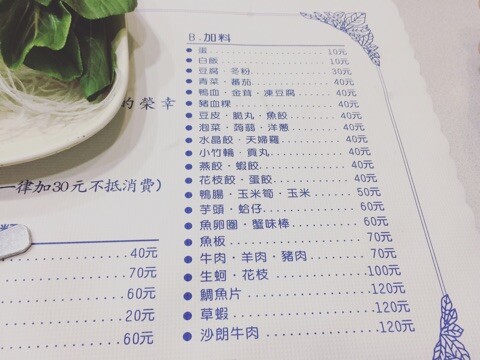 B.加料
蛋 10元
白飯 10元
豆腐·冬粉 30元
青菜·蕃茄 40元
鴨血·金茸·凍豆腐 40元
豬血粿 40元
豆皮·脆丸·魚餃 40元
泡菜·蒟蒻·洋蔥 40元
水晶餃·天婦羅 40元
小竹輪·貢丸 40元
燕餃·蝦餃 40元
花枝餃·蛋餃 40元
鴨腸·玉米筍·玉米 50元
芋頭·蛤仔 60元
魚卵圈·蟹味棒 60元
魚板 70元
牛肉·羊肉·豬肉 70元
生蚵·花枝 100元
鯛魚片 120元
草蝦 120元
沙朗牛肉 120元
的榮幸
一律加30元不抵消費)
40元
70元
60元
20元
60元